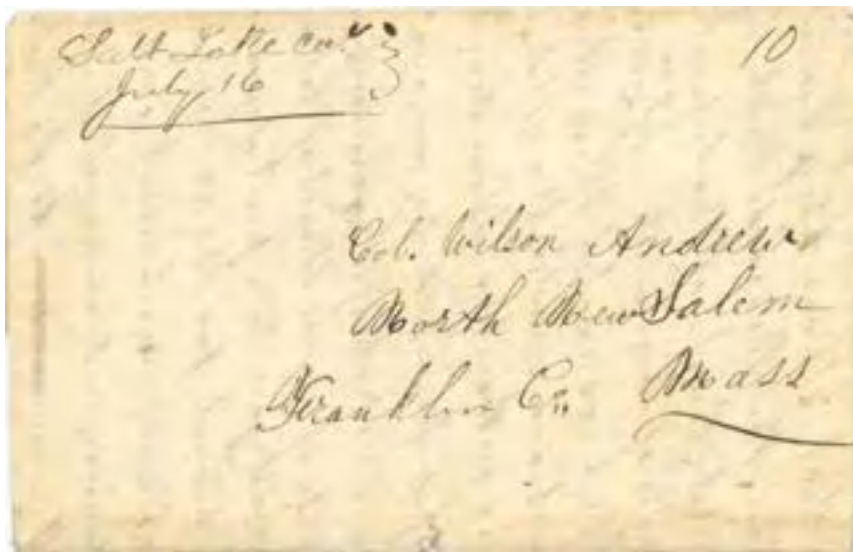 Salt Lake City
July 16
10
Col. Wilson Andrews
North New Salem
Franklin Co. Mass